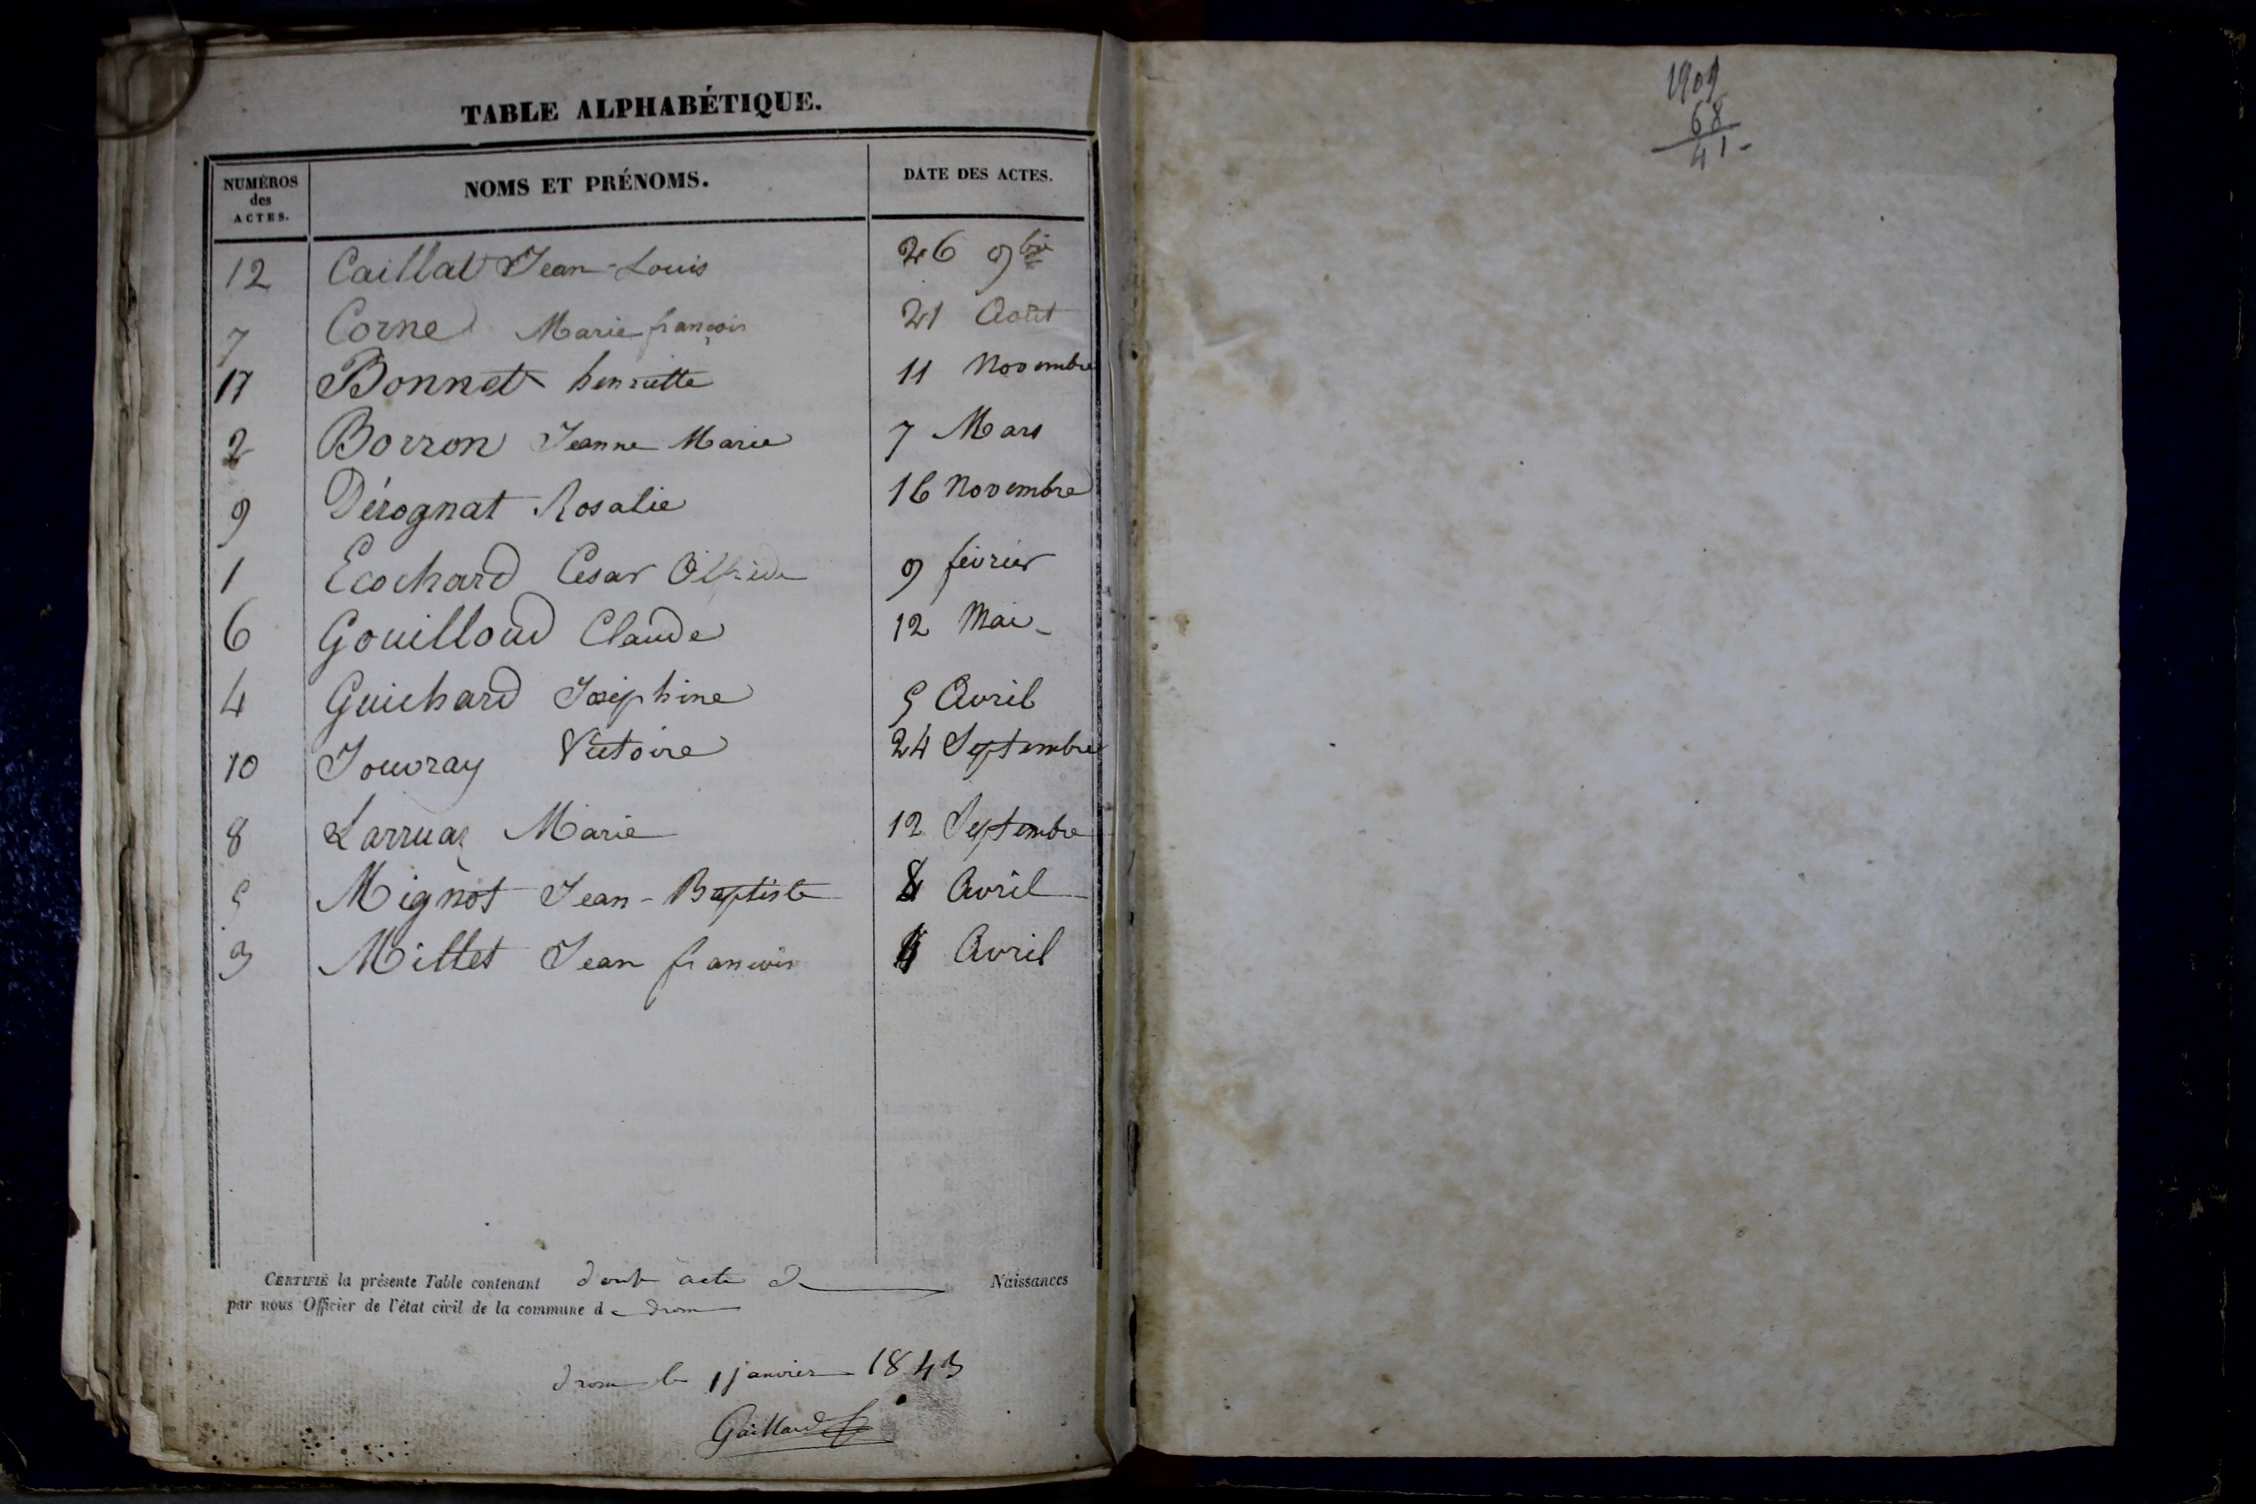 TABLE ALPHABÉTIQUE.
NUMÉROS des ACTES. NOMS ET PRÉNOMS. DATE DES ACTES.
12 Caillat Jean-Louis 26 9bre
7 Corne Marie françois 21 Août
17 Bonnet henriette 11 Novembre
2 Borron Jeanne Marie 7 Mars
9 Dérognat Rosalie 16 Novembre
1 Ecochard Cesar 9 février
6 Gouilloud Claude 12 Mai
4 Guichard Joséphine 5 Avril
10 Jouvray Victoire 24 Septembre
8 Larruaz Marie 12 Septembre
5 Mignot Jean-Baptiste 8 Avril
3 Millet Jean françois 4 Avril
CERTIFIÉ la présente Table contenant acte de Naissances
par nous Officier de l'état civil de la commune de drom
drom le 1 janvier 1843
Gaillard
1909
68
41